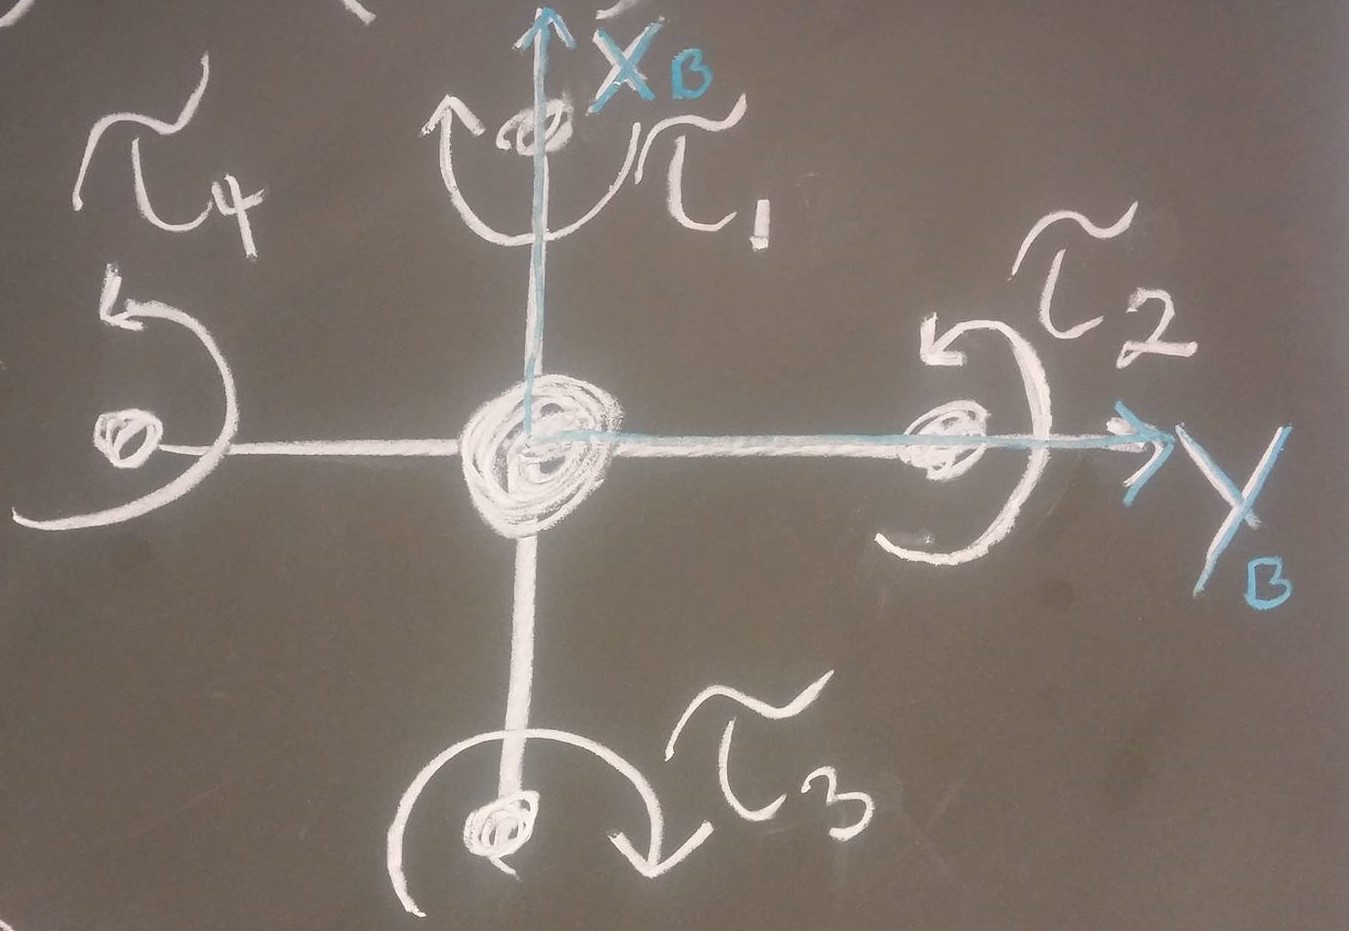 X_B
τ_4
τ_1
τ_2
Y_B
τ_3